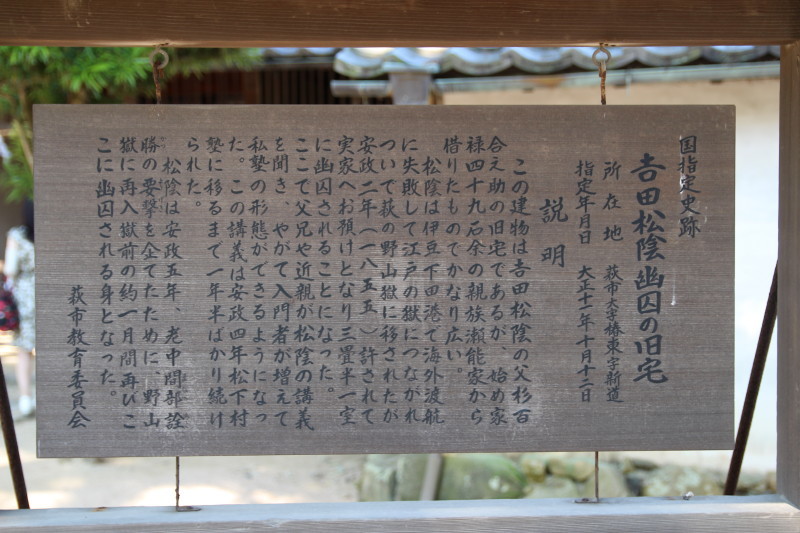 国指定史跡
吉田松陰幽囚の旧宅
所在地　萩市大字椿東字新道
指定年月日　大正十一年十月十二日
説明
この建物は吉田松陰の父杉百
合之助の旧宅であるが、始め家
禄四十九石余の親族瀬能家から
借りたものでかなり広い。
松陰は伊豆下田港で海外渡航
に失敗して江戸の獄につながれ
ついで萩の野山獄に移されたが
安政二年(一八五五)許されて
実家へお預けとなり三畳半一室
に幽囚されることになった。
ここで父兄や近親が松陰の講義
を聞き、やがて入門者が増えて
私塾の形態ができるようになっ
た。この講義は安政四年松下村
塾に移るまで一年半ばかり続け
られた。
松陰は安政五年、老中間部詮
勝の要撃を企てたために、野山
獄に再入獄前の約一月間再びこ
こに幽囚される身となった。
萩市教育委員会